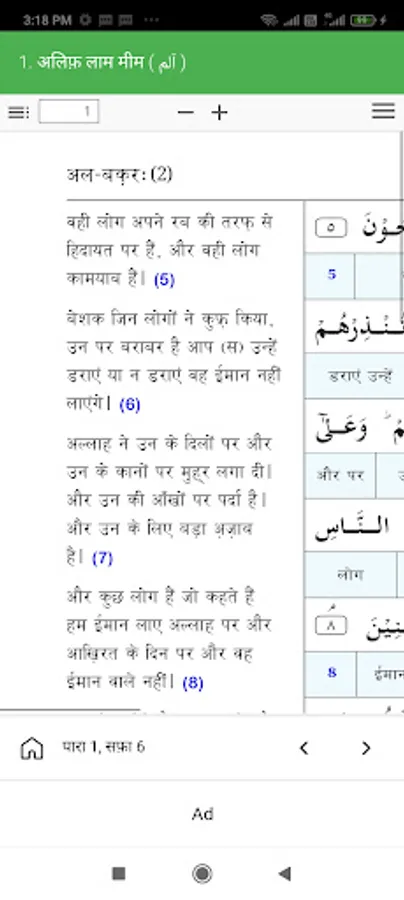 3:18 PM
1. अलिफ़ लाम मीम ( آلم )
1
अल-बक़रः (2)
वही लोग अपने रब की तरफ़ से
हिदायत पर हैं, और वही लोग
कामयाब हैं। (5)
बेशक जिन लोगों ने कुफ़्र किया,
उन पर बराबर है आप (स) उन्हें
डराएं या न डराएं वह ईमान नहीं
लाएंगे। (6)
अल्लाह ने उन के दिलों पर और
उन के कानों पर मुहर लगा दी।
और उन की आँखों पर पर्दा है।
और उन के लिए बड़ा अज़ाब
है। (7)
और कुछ लोग हैं जो कहते हैं
हम ईमान लाए अल्लाह पर और
आख़िरत के दिन पर और वह
ईमान वाले नहीं। (8)
٥
5
डराएं उन्हें
وَعَلٰٓى
और पर
النَّاسِ
लोग
٨
8
ईमान
पारा 1, सफ़ा 6
Ad